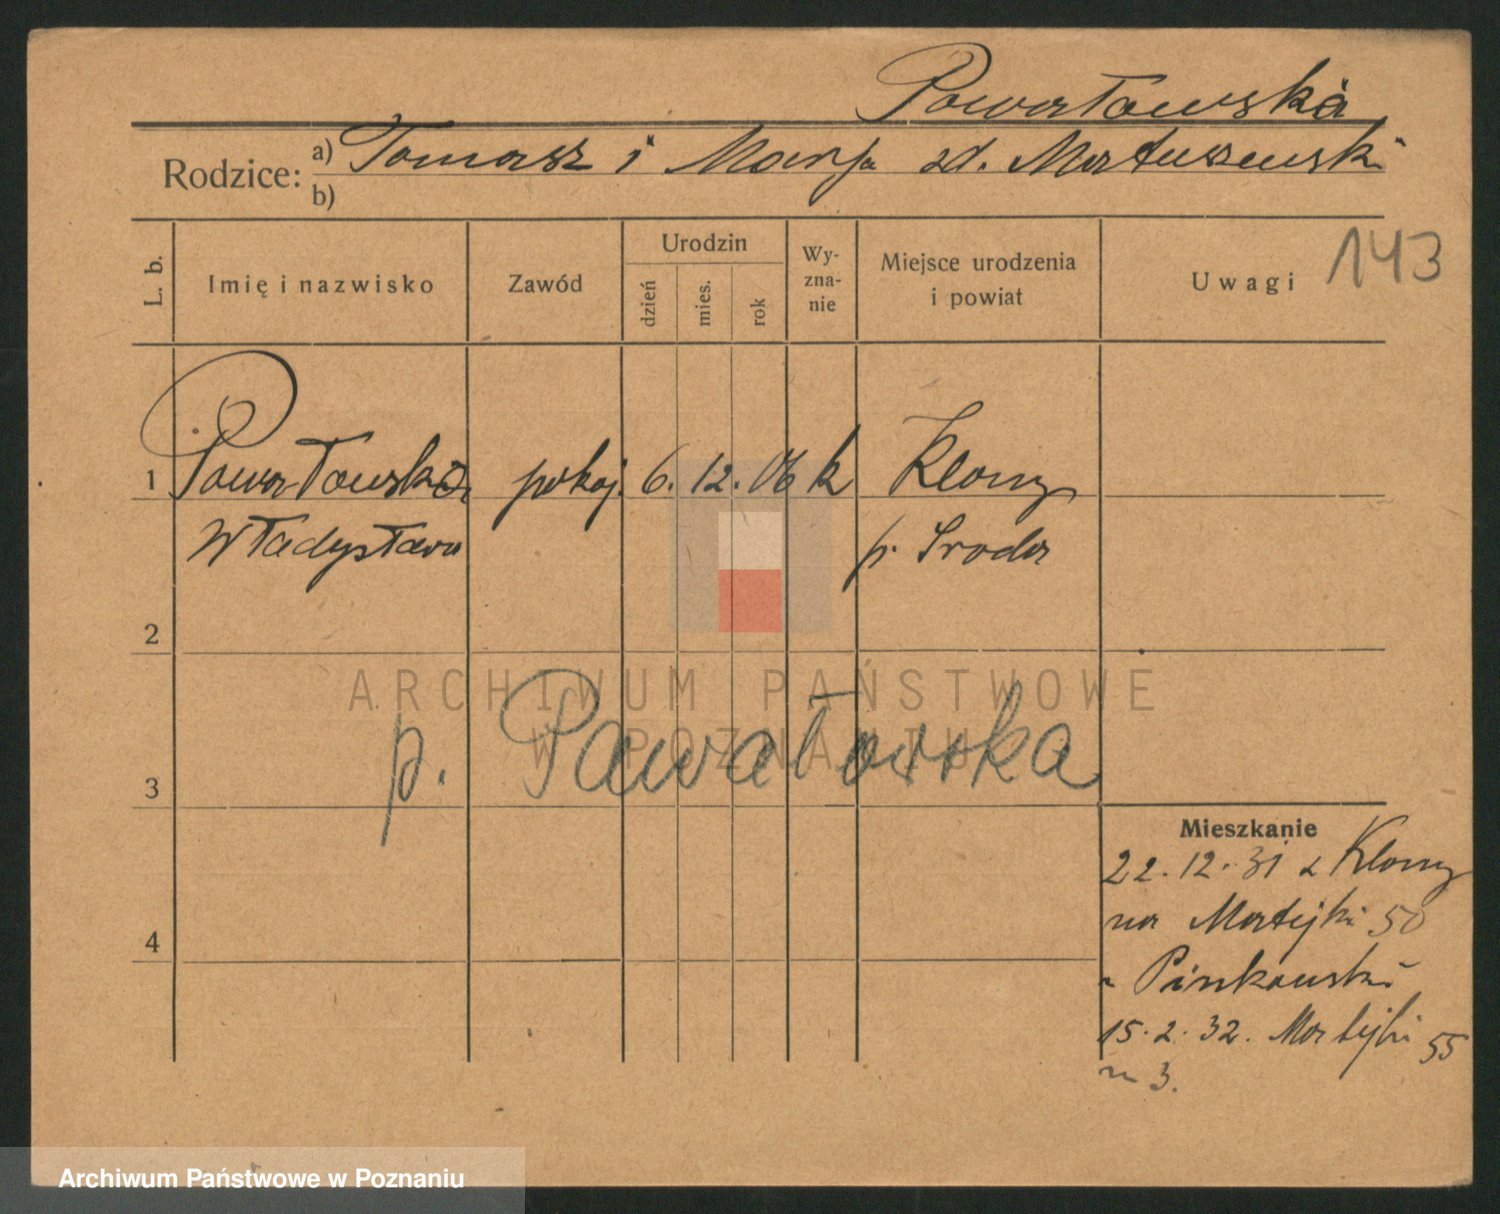 Powałowska
Rodzice: a) Tomasz i Marja zd. Matuszewski
b)
L. b. Imię i nazwisko Zawód Urodzin dzień mies. rok Wy-zna-nie Miejsce urodzenia i powiat Uwagi 143
1 Powałowska pokoj. 6. 12. 06 k Klony
Władysława p. Środa
2
ARCHIWUM PAŃSTWOWE
W POZNANIU
3 p. Pawałowska
Mieszkanie
22.12.31 z Klony
4 na Matejki 50
Pinkowski
15.2.32. Matejki 55
m 3.
Archiwum Państwowe w Poznaniu